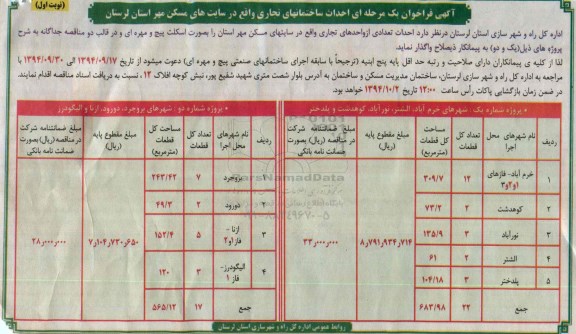 (نوبت اول)
آگهی فراخوان یک مرحله ای احداث ساختمانهای تجاری واقع در سایت های مسکن مهر استان لرستان
اداره کل راه و شهر سازی استان لرستان درنظر دارد احداث تعدادی ازواحدهای تجاری واقع در سایتهای مسکن مهر استان را بصورت اسکلت پیچ و مهره ای و در قالب دو مناقصه جداگانه به شرح
پروژه های ذیل(یک و دو) به پیمانکار ذیصلاح واگذار نماید.
لذا از کلیه ی پیمانکاران دارای صلاحیت و رتبه حد اقل پایه پنج ابنیه (ترجیحاً با سابقه اجرای ساختمانهای صنعتی پیچ و مهره ای) دعوت میشود از تاریخ ۱۳۹۴/۰۹/۱۷ تا ۱۳۹۴/۰۹/۳۰ با
مراجعه به اداره کل راه و شهر سازی لرستان، ساختمان مدیریت مسکن و ساختمان به آدرس بلوار شصت متری شهید شفیع پور، نبش کوچه افلاک ۱۲، نسبت به دریافت اسناد مناقصه اقدام نمایند.
در ضمن زمان بازگشایی پاکات رأس ساعت ۱۲:۰۰ تاریخ ۱۳۹۴/۱۰/۲ خواهد بود.
پروژه شماره یک - شهرهای خرم آباد، الشتر، نورآباد، کوهدشت و پلدختر
ردیف
نام شهرهای محل اجرا
تعداد کل قطعات
مساحت کل قطعات (مترمربع)
مبلغ مقطوع پایه (ریال)
مبلغ ضمانتنامه شرکت در مناقصه (ریال) بصورت ضمانت نامه بانکی
۱ خرم آباد- فازهای ۱و۲و۳ ۱۴ ۳۰۹/۷
۲ کوهدشت ۲ ۷۳/۲
۳ نورآباد ۳ ۱۳۵/۹
۴ الشتر ۲ ۶۱
۵ پلدختر ۳ ۱۰۴/۱۸
جمع ۲۲ ۶۸۳/۹۸
۸٫۷۹۱٫۹۳۴٫۷۱۴
پروژه شماره دو - شهرهای بروجرد، دورود، ازنا و الیگودرز
ردیف
نام شهرهای محل اجرا
تعداد کل قطعات
مساحت کل قطعات (مترمربع)
مبلغ مقطوع پایه (ریال)
مبلغ ضمانتنامه شرکت در مناقصه(ریال) بصورت ضمانت نامه بانکی
۱ بروجرد ۷ ۲۴۳/۴۲
۲ دورود ۲ ۴۹/۳
۳ ازنا - فاز ۱و۲ ۵ ۱۵۲/۴
۴ الیگودرز- فاز ۱ ۳ ۱۲۰
جمع ۱۷ ۵۶۵/۱۲
۷٫۱۰۴٫۷۳۰٫۶۵۰
روابط عمومی اداره کل راه و شهرسازی استان لرستان